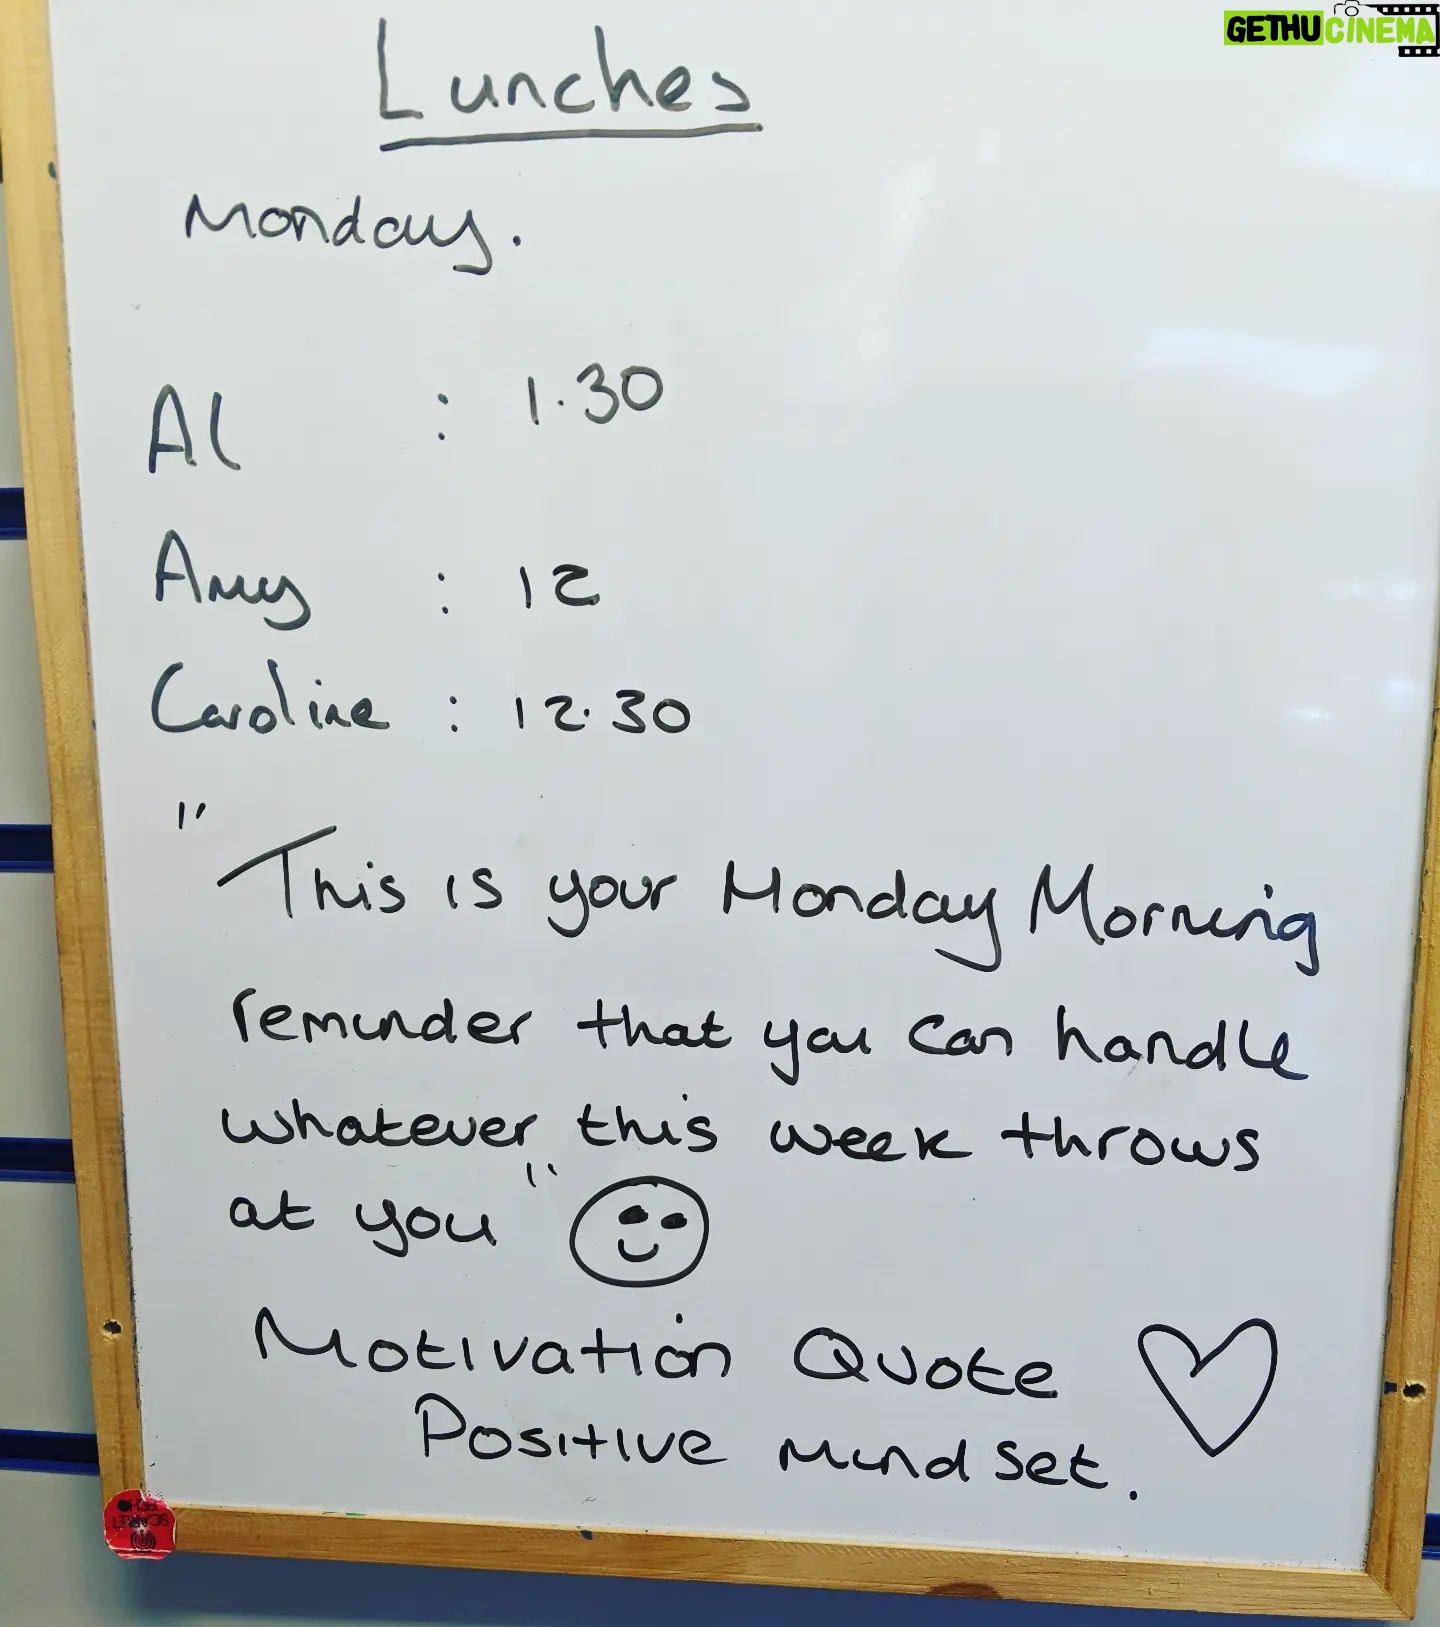 GETHUCINEMA
Lunches
Monday.
Al : 1.30
Amy : 12
Caroline : 12.30
"This is your Monday Morning
reminder that you can handle
whatever this week throws
at you"
Motivation Quote
Positive mindset.
SCARLET
ECHO